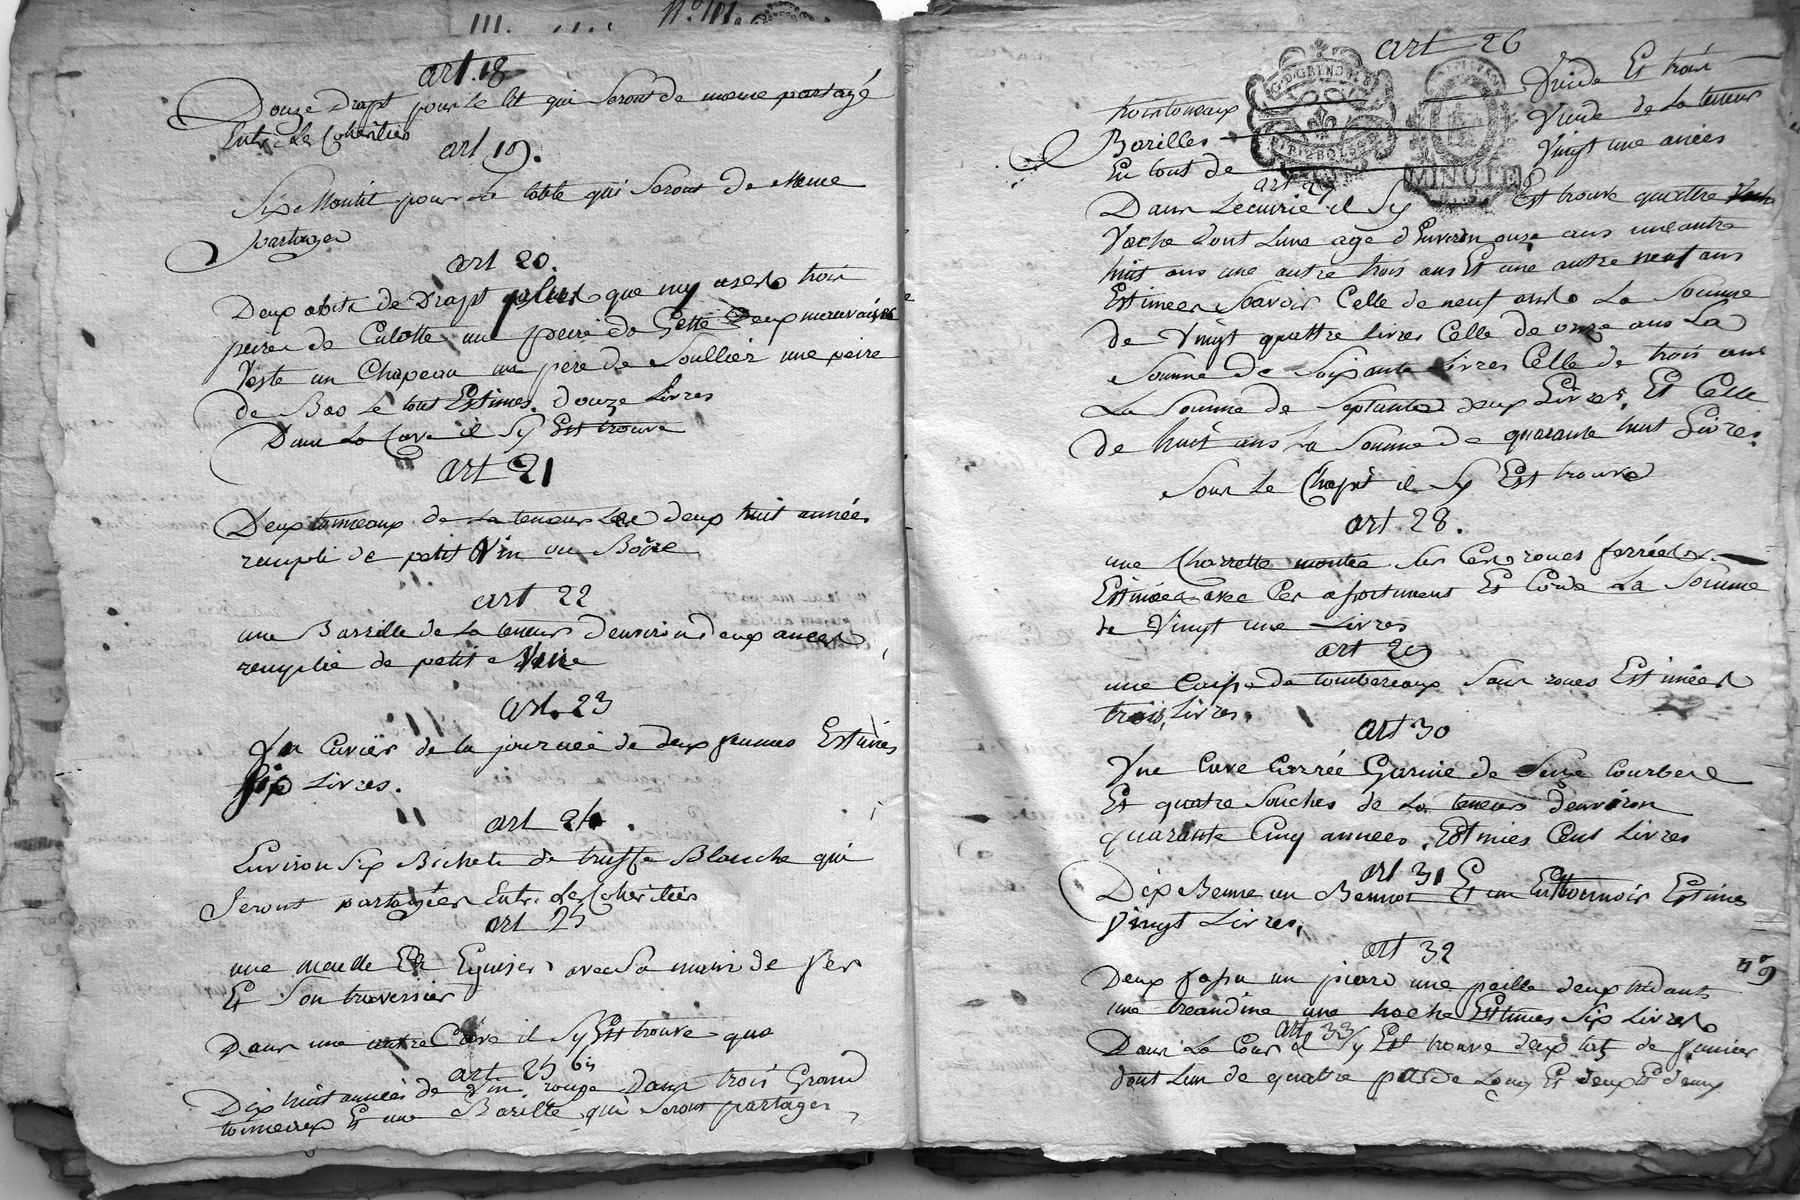 N° 101
art. 18
Douze Drapt pour le lit qui Seront de meme partagé
Entre Les Coheritiés
art 19.
Six Mantit pour La table qui Seront de Meme
partager
art 20.
Deux abits de Drapt que my usés trois
peire de Culotte une peire de Gette Deux mauvaises
Veste un Chapeau un pere de Soullier une peire
de Bas Le tout Estimés douze Livres
Dans La Cave il Sy Est trouve
art 21
Deux tonneaux de La teneur Les deux huit années
rempli de petit Vin ou Boire
art 22
une Barrille de La teneur denviron deux anées
remplie de petit
art. 23
Un Cuvier de la journée de deux femmes Estimés
Six Livres.
art 24.
Environ Six Bichets de truffe Blanche qui
Seront partagées Entre Les Coheritiés
art 25
une meule Eguiser avec Sa main de fer
Et Son traversier
Dans une autre Cave il Sy Est trouve que
art 25 bis
Dix huit années de Vin rouge Dans trois Grand
tonneaux Et une Barille qui Seront partager
art 26
Vuide Et trois
tonneaux
Barilles Vuide de La teneur
En tout de Vingt une anées
G. D. GRENOBLE
MINUTE
art 27
Dans Lecurie il Sy Est trouve quattre
Vache dont Lune age d'Environ onze ans une autre
huit ans une autre trois ans Et une autre neuf ans
Estimées Scavoir Celle de neuf ans La Somme
de Vingt quattre Livres Celle de onze ans La
Somme de Soixante Livres Celle de trois ans
La Somme de Septante deux Livres, Et Celle
de huit ans La Somme de quarante huit Livres.
Sous Le Chapit il Sy Est trouve
art. 28.
une Charrette montée Sur Ces roues ferrées
Estimées avec Ces asortiment Et Corde La Somme
de Vingt une Livres
art 29
une Caisse de tombereaux Sans roues Estimées
trois Livres.
art 30
Une Cuve Carrée Garnie de Seize Courbere
Et quatre Souches de La teneur denviron
quarante Cinq années. Estimies Cent Livres
art 31
Dix Benne un Bennot Et un Enthonnoir Estimés
Vingt Livres,
art 32
Deux un une paille deux
une une hache Estimés Six Livres
n° 9
art 33
Dans La Cour il Sy Est trouve deux tas de fumier
dont Lun de quattre pas de Long Et deux Et demy